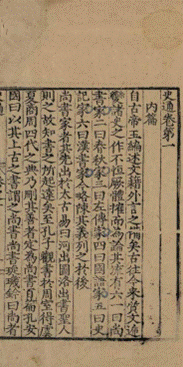 史通卷第一
內篇
自古帝王編述文籍外篇言之備矣古往今來質文遞
變諸史之作不恒厥體榷而為論其流有六一曰尚
書家二曰春秋家三曰左傳家四曰國語家五曰史
記家六曰漢書家今略陳其義列之於後
尚書家者其先出於太古易曰河出圖洛出書聖人
則之故知書之所起遠矣至孔子觀書於周室得虞
夏商周四代之典乃刪其善者定為尚書百篇孔安
國曰以其上古之書謂之尚書尚書璇璣鈐曰尚者